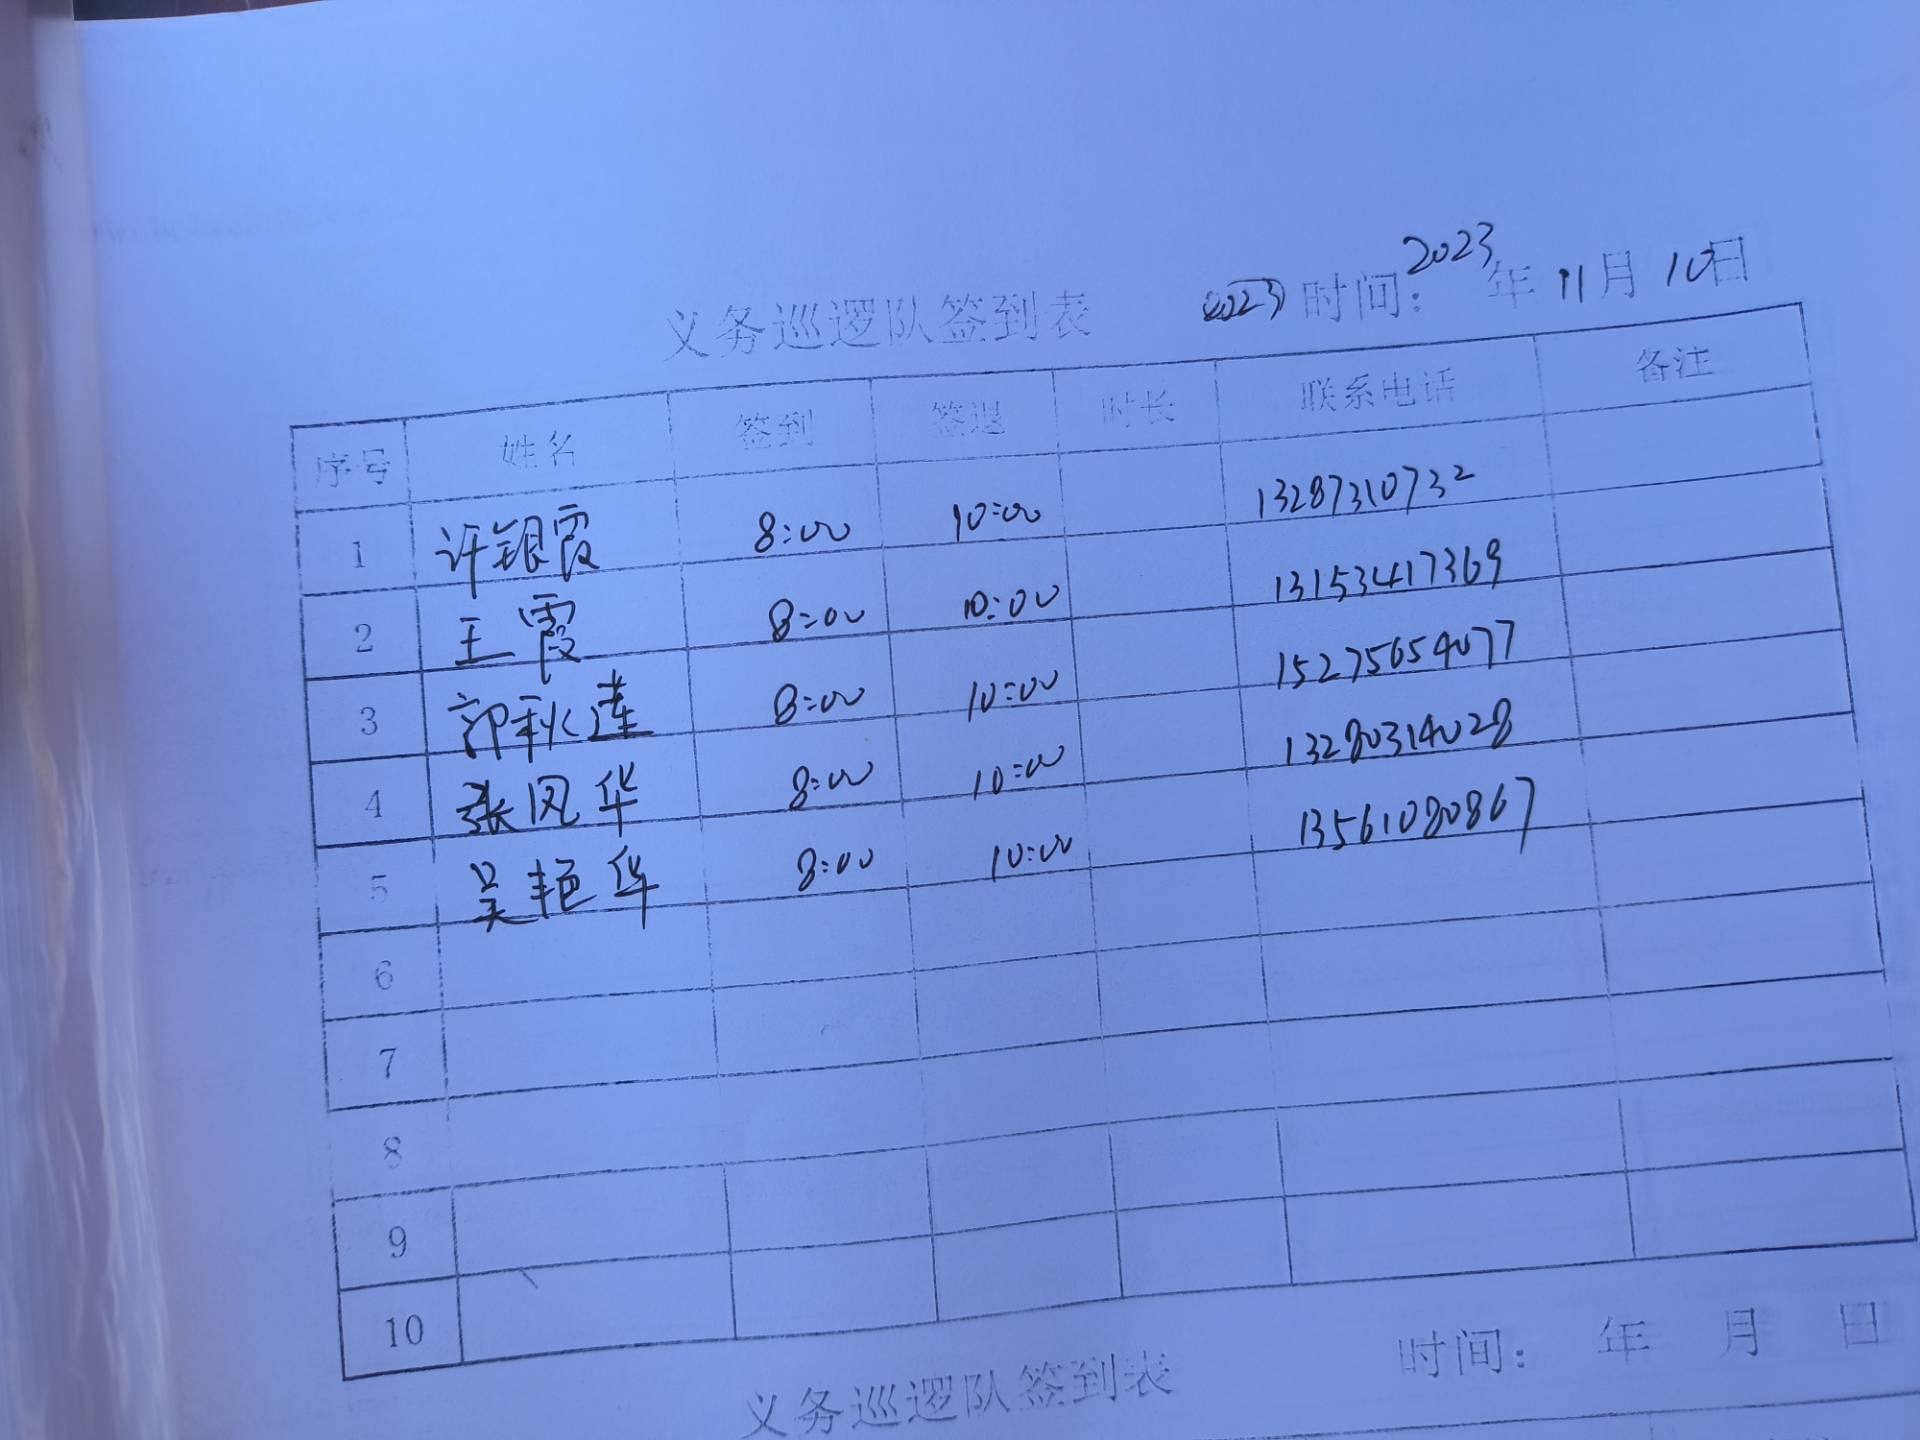 义务巡逻队签到表 2023 时间: 2023年 11月 10日
序号 姓名 签到 签退 时长 联系电话 备注
1 许银霞 8:00 10:00 13287310732
2 王霞 8:00 10:00 13153417369
3 郭秋莲 8:00 10:00 15275654077
4 张风华 8:00 10:00 13280314028
5 吴艳华 8:00 10:00 13561080867
6
7
8
9
10
义务巡逻队签到表 时间: 年 月 日